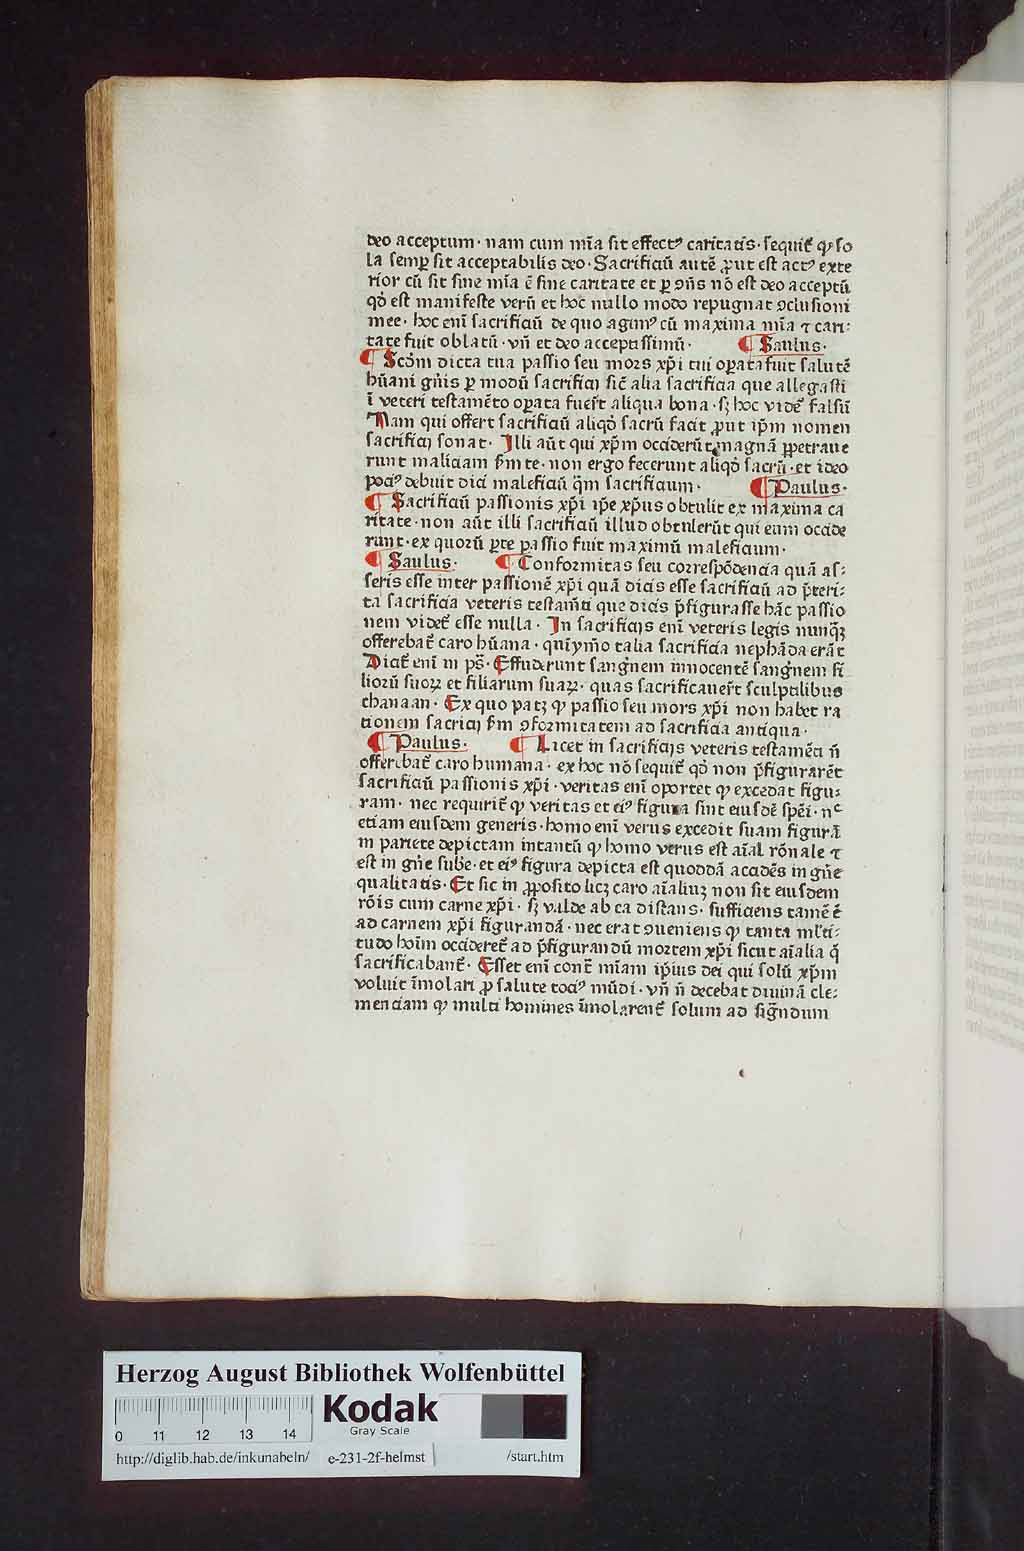 deo acceptum · nam cum mīa sit effectꝰ caritatis · sequit᷑ ꝙ so
la semꝑ sit acceptabilis deo · Sacrificiū autē ꝓut est actꝰ exte
rior cū sit sine mīa ē sine caritate et ꝑ ꝯn̄s nō est deo acceptū
qd̄ est manifeste verū et hoc nullo modo repugnat ꝯclusioni
mee · hoc enī sacrificiū de quo agimꝰ cū maxima mīa ⁊ cari:
tate fuit oblatū · vn̄ et deo acceptissimū · ¶ Saulus ·
¶ Scd̄m dicta tua passio seu mors xp̄i tui oꝑata fuit salutē
hūani gn̄is ꝑ modū sacrificij sic̄ alia sacrificia que allegasti
ī veteri testamēto oꝑata fuer̄t aliqua bona · sꝫ hoc videt᷑ falsū
Nam qui offert sacrificiū aliqd̄ sacrū facit ꝓut ip̄m nomen
sacrificij sonat · Illi aūt qui xp̄m occiderūt magnā ꝑpetraue
runt maliciam ẜm te · non ergo fecerunt aliqd̄ sacrū · et ideo
pociꝰ debuit dici maleficiū q̄m sacrificium · ¶ Paulus ·
¶ Sacrificiū passionis xp̄i ip̄e xp̄us obtulit ex maxima ca
ritate · non aūt illi sacrificiū illud obtulerūt qui eum occide
runt · ex quorū ꝑte passio fuit maximū maleficium ·
¶ Saulus · ¶ Conformitas seu correspōdencia quā as:
seris esse inter passionē xp̄i quā dicis esse sacrificiū ad p̄teri:
ta sacrificia veteris testam̄ti que dicis p̄figurasse hāc passio
nem videt᷑ esse nulla · In sacrificijs enī veteris legis nunq̄ꝫ
offerebat᷑ caro hūana · quīymo talia sacrificia nephāda erāt
Dicit᷑ enī in ps̄ · Effuderunt sangn̄em innocentē sangn̄em fi
lioꝝ suoꝝ et filiarum suaꝝ · quas sacrificauer̄t sculptilibus
chanaan · Ex quo patꝫ ꝙ passio seu mors xp̄i non habet ra
tionem sacricij ẜm ꝯformitatem ad sacrificia antiqua ·
¶ Paulus · ¶ Licet in sacrificijs veteris testamēti n̄
offerebat᷑ caro humana · ex hoc nō sequit᷑ qd̄ non p̄figurarēt
sacrificiū passionis xp̄i · veritas enī oportet ꝙ excedat figu:
ram · nec requirit᷑ ꝙ veritas et eiꝰ figura sint eiusdē sp̄ei · nᶜ
etiam eiusdem generis · homo enī verus excedit suam figurā
in pariete depictam intantū ꝙ homo verus est aīal rōnale ⁊
est in gn̄e sub̄e · et eiꝰ figura depicta est quoddā accidēs in gn̄e
qualitatis · Et sic in ꝓposito licꝫ caro aīaliuꝫ non sit eiusdem
rōis cum carne xp̄i · sꝫ valde ab ea distans · sufficiens tamē ē
ad carnem xp̄i figurandā · nec erat ꝯueniens ꝙ tanta ml̄ti:
tudo hoīm occideret᷑ ad p̄figurandū mortem xp̄i sicut aīalia q̄
sacrificabant᷑ · Esset enī cont᷑ mīam ip̄ius dei qui solū xp̄m
voluit īmolari ꝓ salute tociꝰ mūdi · vn̄ n̄ decebat diuinā cle:
menciam ꝙ multi homines īmolarent᷑ solum ad sigñdum
Herzog August Bibliothek Wolfenbüttel
Kodak
Gray Scale
0 11 12 13 14
http://diglib.hab.de/inkunabeln/ e-231-2f-helmst /start.htm